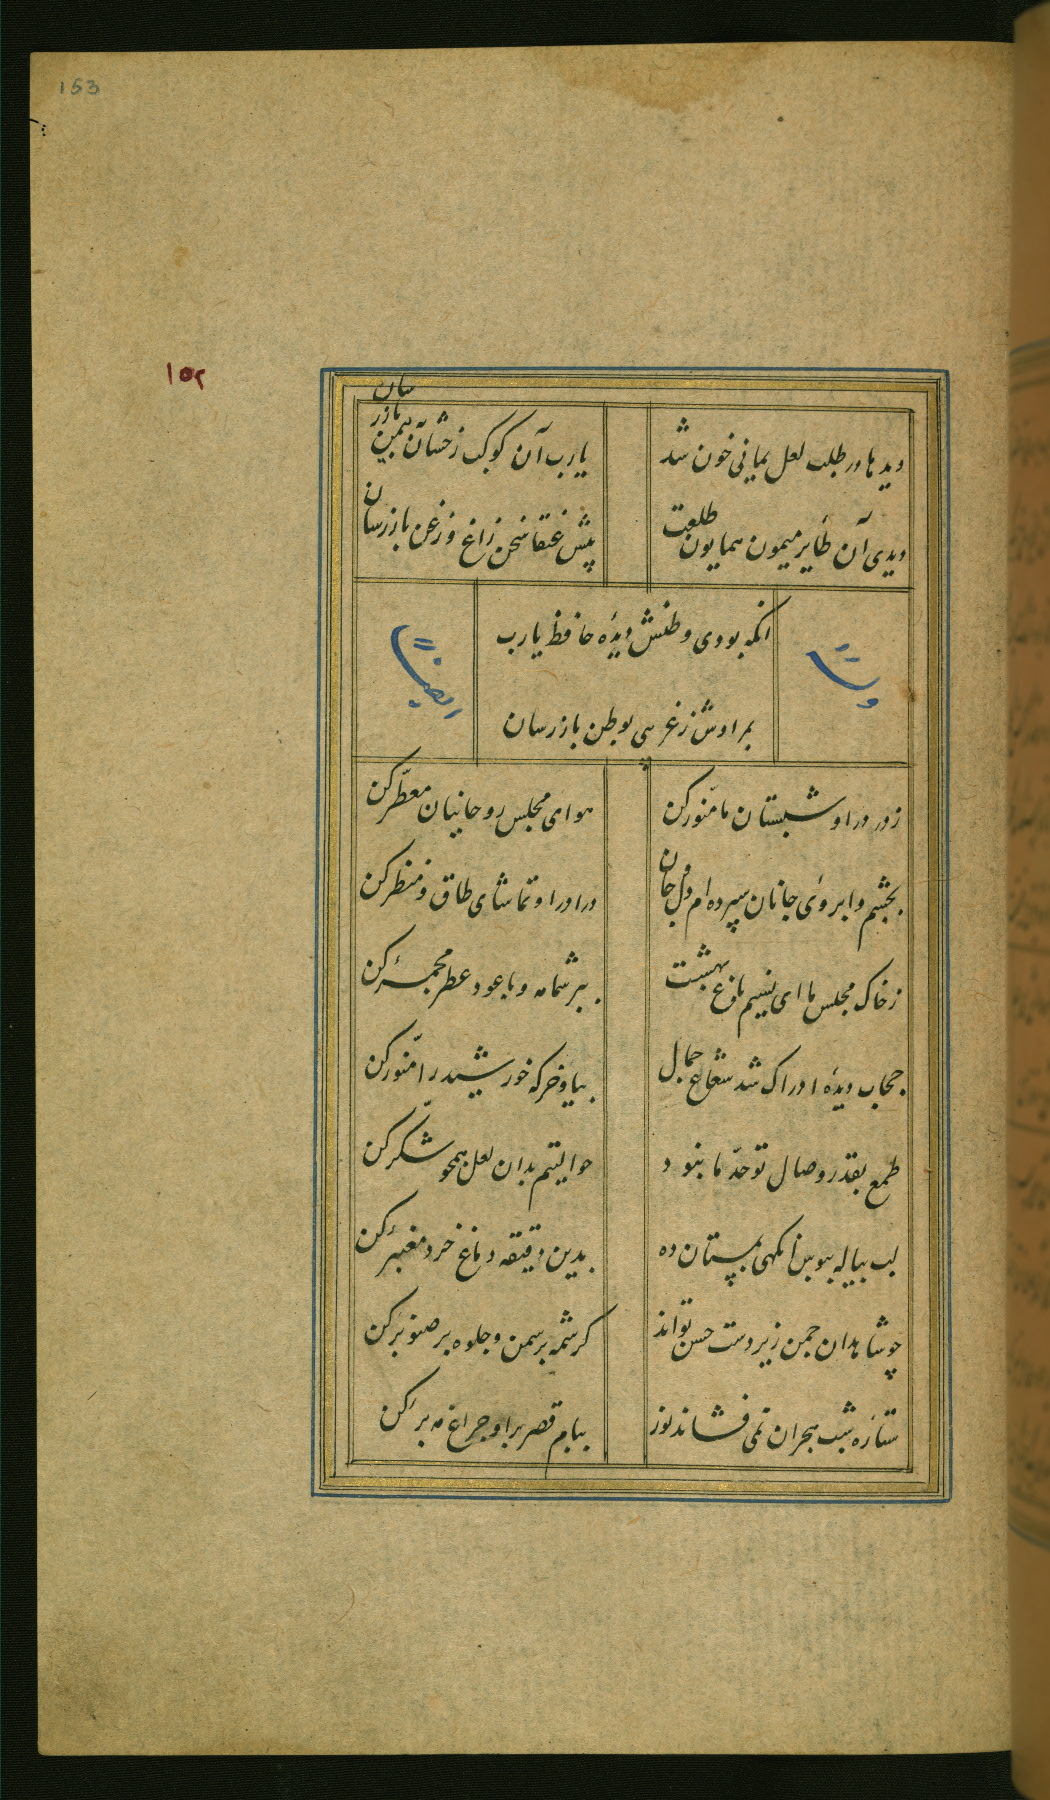 153
۱۵۲
دیدها در طلب لعل یمانی خون شد
یارب آن کوکب رخشان بیمین بازرسان
دیدی آن طایر میمون همایون طلعت
پیش عنقا سخن زاغ و زغن بازرسان
انکه بودی وطنش دیدهٔ حافظ یارب
بمرادش ز غریبی بوطن بازرسان
وله
ایضاً
ز در درا و شبستان ما منور کن
هوای مجلس روحانیان معطّر کن
بچشم و ابروی جانان سپرده ام دل و جان
درا درا و تماشای طاق و منظر کن
ز خاک مجلس ما ای نسیم باغ بهشت
ببر شمامه و با عود عطر مجمر کن
حجاب دیدهٔ ادراک شد شعاع جمال
بیا و خرکه خورشید را منّور کن
طمع بقدر وصال تو حدّ ما نبود
حوالیتم بدان لعل همچو شکّر کن
لب پیاله ببوس انکهی بمستان ده
بدین دقیقه دماغ خرد معنبر کن
چو شاهدان چمن زیردست حسن تواند
کرشمه بر سمن و جلوه بر صنوبر کن
ستاره شب هجران نمی فشاند نور
ببام قصر برا و چراغ مه بر کن